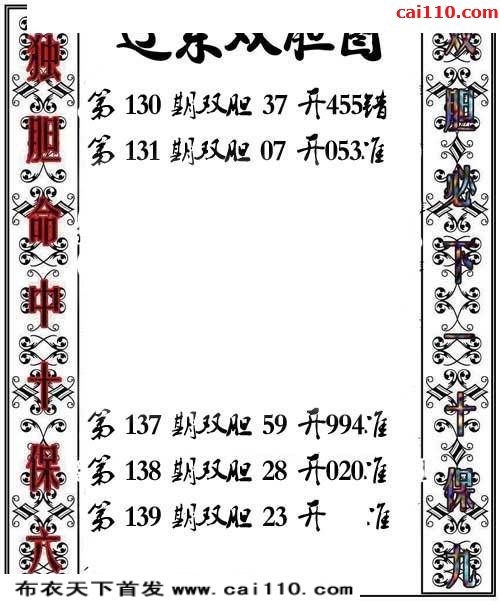 cai110.com
东双胆图
独胆命中十保六
双胆必下一十保九
第 130 期双胆 37 开455错
第 131 期双胆 07 开053准
第 137 期双胆 59 开994准
第 138 期双胆 28 开020准
第 139 期双胆 23 开 准
布衣天下首发 www.cai110.com